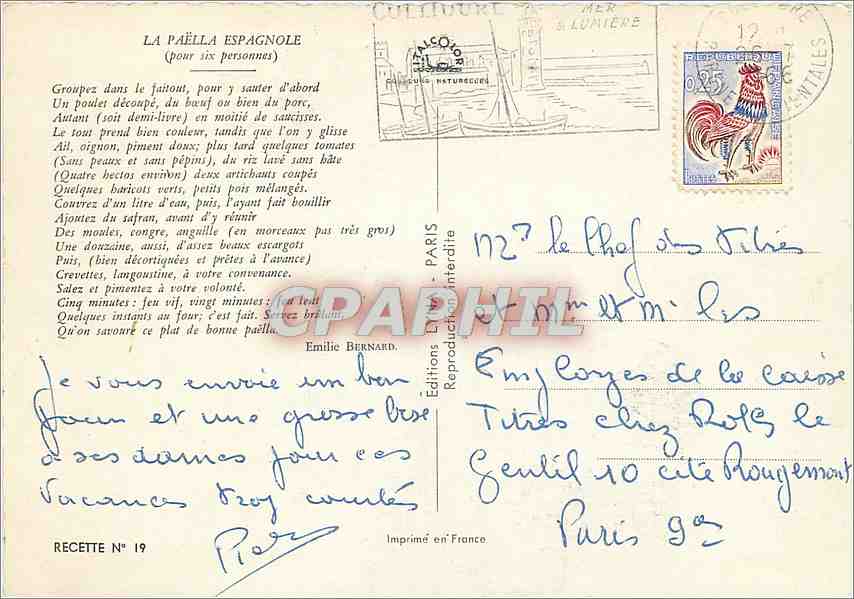 LA PAËLLA ESPAGNOLE
(pour six personnes)
Groupez dans le faitout, pour y sauter d'abord
Un poulet découpé, du bœuf ou bien du porc,
Autant (soit demi-livre) en moitié de saucisses.
Le tout prend bien couleur, tandis que l'on y glisse
Ail, oignon, piment doux; plus tard quelques tomates
(Sans peaux et sans pépins), du riz lavé sans hâte
(Quatre hectos environ) deux artichauts coupés
Quelques haricots verts, petits pois mélangés.
Couvrez d'un litre d'eau, puis, l'ayant fait bouillir
Ajoutez du safran, avant d'y réunir
Des moules, congre, anguille (en morceaux pas très gros)
Une douzaine, aussi, d'assez beaux escargots
Puis, (bien décortiquées et prêtes à l'avance)
Crevettes, langoustine, à votre convenance.
Salez et pimentez à votre volonté.
Cinq minutes : feu vif, vingt minutes : feu lent
Quelques instants au four; c'est fait. Servez brûlant,
Qu'on savoure ce plat de bonne paëlla.
Emilie BERNARD.
Je vous envoie un bon
jour et une grosse bise
a ses dames pour ces
vacances trop courtes
RECETTE N° 19
Editions - PARIS
Reproduction interdite
Imprimé en France
COLLIOURE
MER
& LUMIÈRE
ITALCOLOR
COULEURS NATURELLES
REPUBLIQUE FRANÇAISE
0,25
POSTES
Mr le Chef des Titres
et Mme et Mr les
Employes de la caisse
Titres chez le
Gentil 10 cité Rougemont
Paris 9e
CPAPHIL